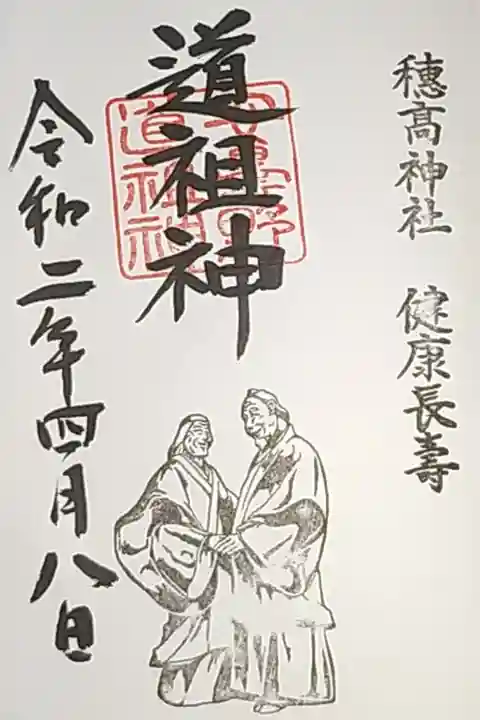 穂髙神社 健康長壽
道祖神
安曇野
道祖神
令和二年四月八日